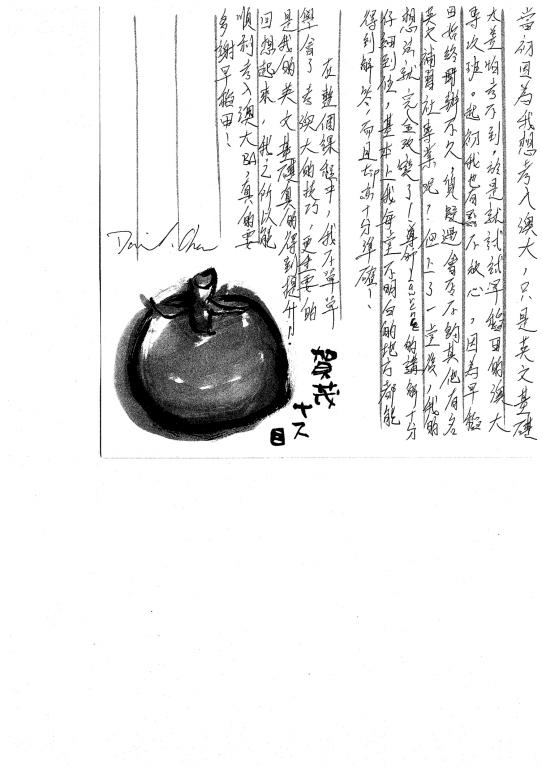 當初因為我想考入澳大，只是英文基礎
太差怕考不到，於是就試試早稻田的澳大
專攻班。起初我也有點不放心，因為早稻
田始終開辦不久，質疑過會否不夠其他有名
英文補習社專業呢？但上了一堂後，我的
想法就完全改變了！導師的講解十分
仔細到位，基本上我每堂不明白的地方都能
得到解答，而且都十分準確！
在整個課程中，我不單單
學會了考澳大的技巧，更重要的
是我的英文基礎真的得到提升！
回想起來，我之所以能
順利考入澳大BA，真的要
多謝早稻田！
賀茂